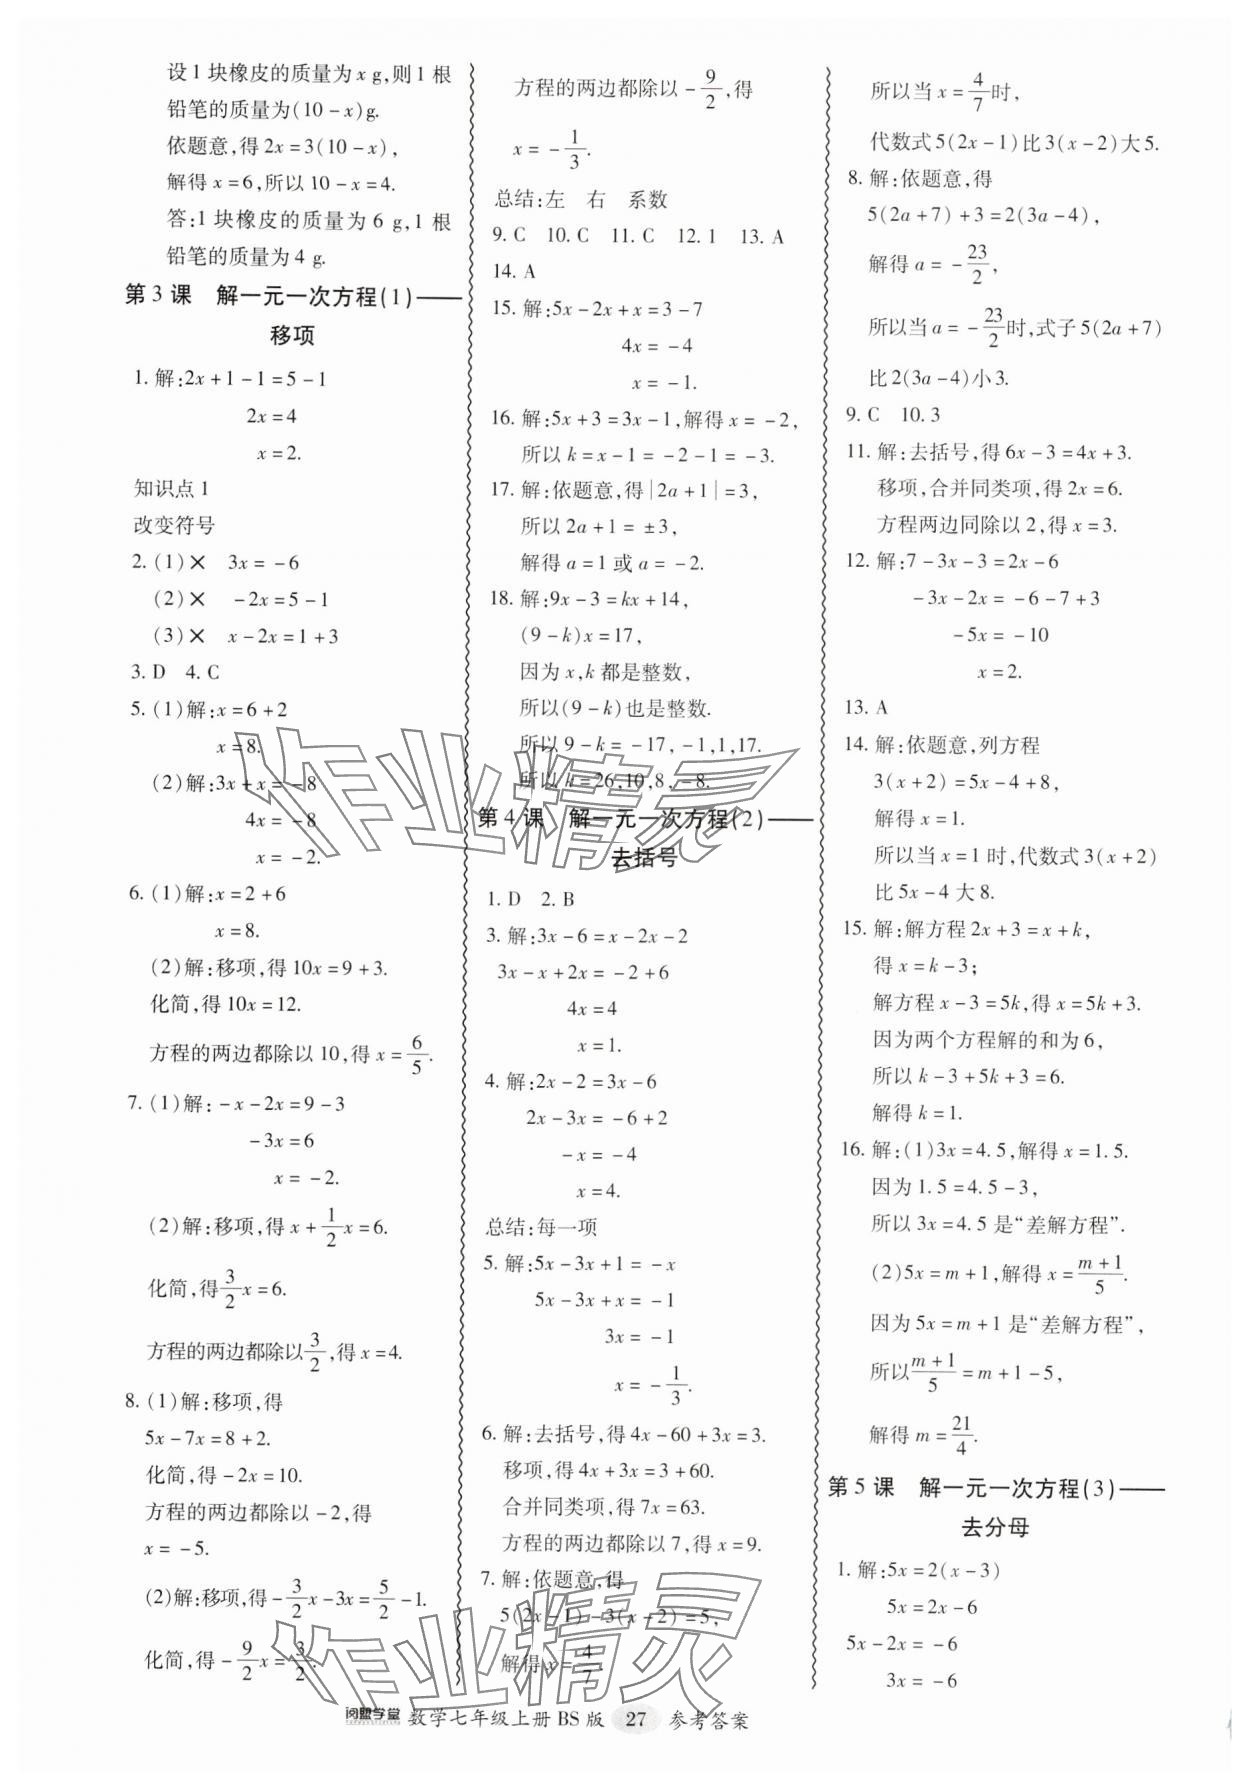 设1块橡皮的质量为x g,则1根
铅笔的质量为(10-x)g.
依题意,得2x=3(10-x),
解得x=6,所以10-x=4.
答:1块橡皮的质量为6 g,1根
铅笔的质量为4 g.
第3课 解一元一次方程(1)——
移项
1.解:2x+1-1=5-1
2x=4
x=2.
知识点1
改变符号
2.(1)× 3x=-6
(2)× -2x=5-1
(3)× x-2x=1+3
3.D 4.C
5.(1)解:x=6+2
x=8.
(2)解:3x+x=-8
4x=-8
x=-2.
6.(1)解:x=2+6
x=8.
(2)解:移项,得10x=9+3.
化简,得10x=12.
方程的两边都除以10,得x=6/5.
7.(1)解:-x-2x=9-3
-3x=6
x=-2.
(2)解:移项,得x+1/2x=6.
化简,得3/2x=6.
方程的两边都除以3/2,得x=4.
8.(1)解:移项,得
5x-7x=8+2.
化简,得-2x=10.
方程的两边都除以-2,得
x=-5.
(2)解:移项,得-3/2x-3x=5/2-1.
化简,得-9/2x=3/2.
方程的两边都除以-9/2,得
x=-1/3.
总结:左 右 系数
9.C 10.C 11.C 12.1 13.A
14.A
15.解:5x-2x+x=3-7
4x=-4
x=-1.
16.解:5x+3=3x-1,解得x=-2,
所以k=x-1=-2-1=-3.
17.解:依题意,得|2a+1|=3,
所以2a+1=±3,
解得a=1或a=-2.
18.解:9x-3=kx+14,
(9-k)x=17,
因为x,k都是整数,
所以(9-k)也是整数.
所以9-k=-17,-1,1,17.
所以k=26,10,8,-8.
第4课 解一元一次方程(2)——
去括号
1.D 2.B
3.解:3x-6=x-2x-2
3x-x+2x=-2+6
4x=4
x=1.
4.解:2x-2=3x-6
2x-3x=-6+2
-x=-4
x=4.
总结:每一项
5.解:5x-3x+1=-x
5x-3x+x=-1
3x=-1
x=-1/3.
6.解:去括号,得4x-60+3x=3.
移项,得4x+3x=3+60.
合并同类项,得7x=63.
方程的两边都除以7,得x=9.
7.解:依题意,得
5(2x-1)-3(x-2)=5,
解得x=4/7.
所以当x=4/7时,
代数式5(2x-1)比3(x-2)大5.
8.解:依题意,得
5(2a+7)+3=2(3a-4),
解得a=-23/2,
所以当a=-23/2时,式子5(2a+7)
比2(3a-4)小3.
9.C 10.3
11.解:去括号,得6x-3=4x+3.
移项,合并同类项,得2x=6.
方程两边同除以2,得x=3.
12.解:7-3x-3=2x-6
-3x-2x=-6-7+3
-5x=-10
x=2.
13.A
14.解:依题意,列方程
3(x+2)=5x-4+8,
解得x=1.
所以当x=1时,代数式3(x+2)
比5x-4大8.
15.解:解方程2x+3=x+k,
得x=k-3;
解方程x-3=5k,得x=5k+3.
因为两个方程解的和为6,
所以k-3+5k+3=6.
解得k=1.
16.解:(1)3x=4.5,解得x=1.5.
因为1.5=4.5-3,
所以3x=4.5是“差解方程”.
(2)5x=m+1,解得x=(m+1)/5.
因为5x=m+1是“差解方程”,
所以(m+1)/5=m+1-5,
解得m=21/4.
第5课 解一元一次方程(3)——
去分母
1.解:5x=2(x-3)
5x=2x-6
5x-2x=-6
3x=-6
阅盟学堂 数学七年级上册BS版 27 参考答案
作业精灵
作业精灵